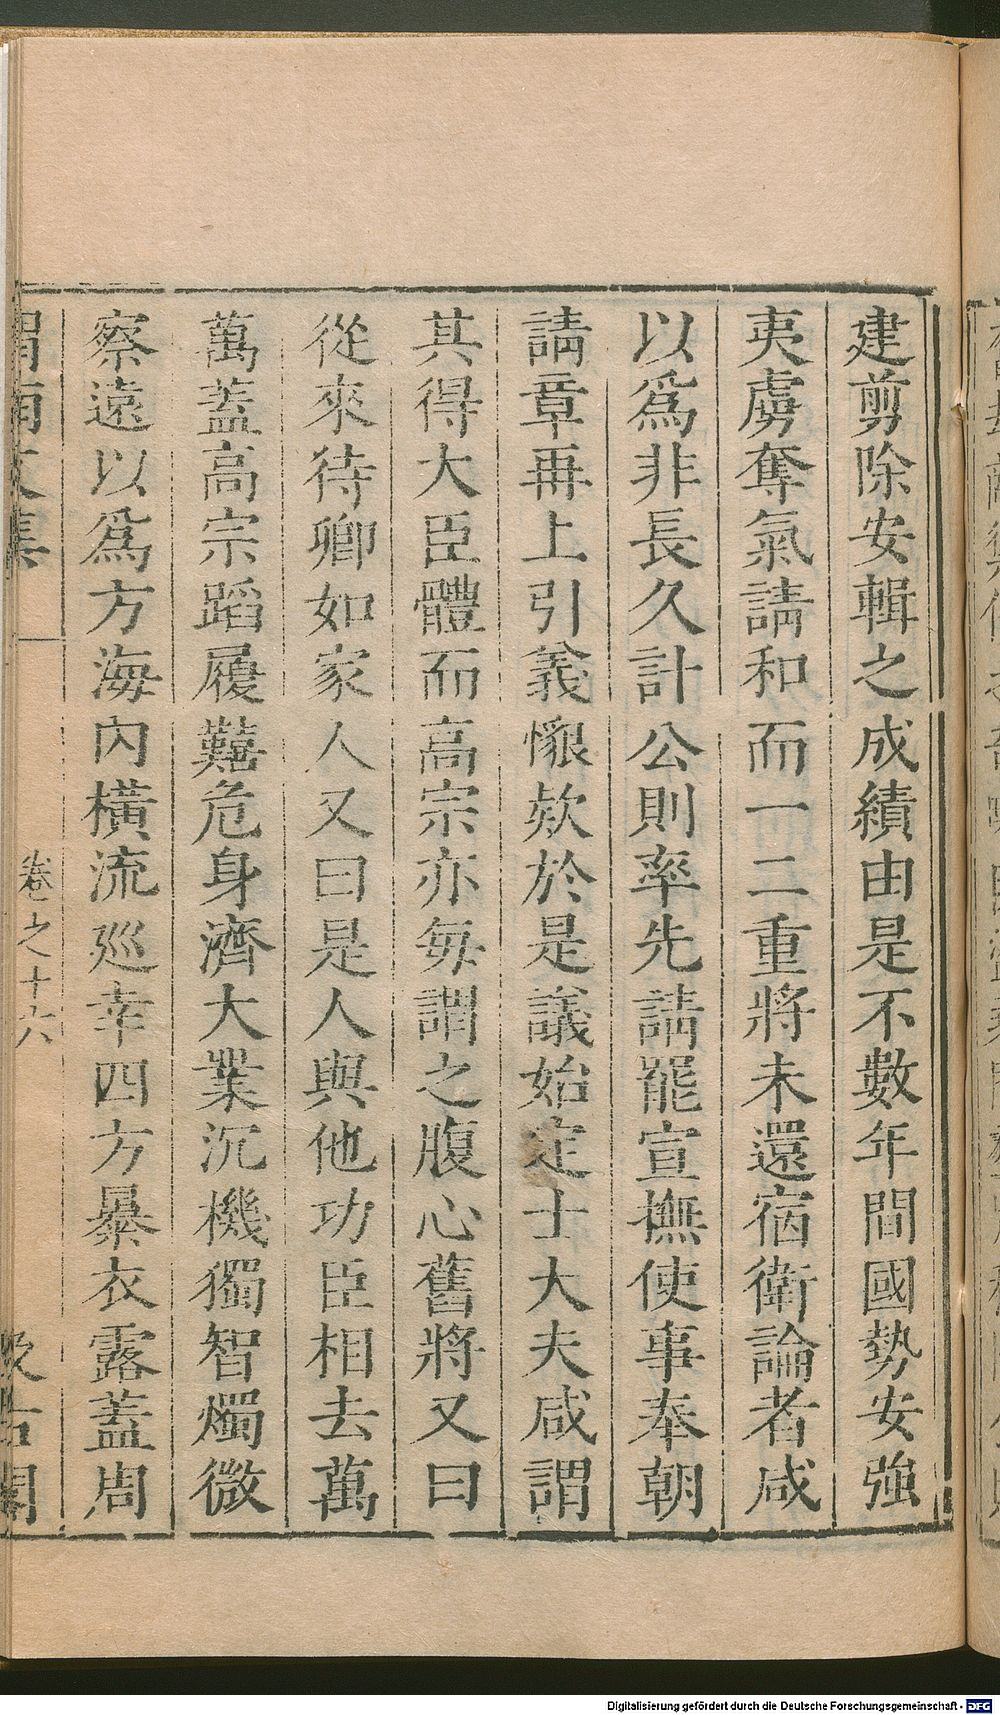 建剪除安輯之成績由是不數年間國勢安強
夷虜奪氣請和而一二重將未還宿衛論者咸
以爲非長久計公則率先請罷宣撫使事奉朝
請章再上引義懇欵於是議始定士大夫咸謂
其得大臣體而高宗亦每謂之腹心舊將又曰
從來待卿如家人又曰是人與他功臣相去萬
萬蓋高宗蹈履艱危身濟大業沉機獨智燭微
察遠以爲方海內橫流巡幸四方暴衣露蓋周
渭南文集
卷之十六
汲古閣
Digitalisierung gefördert durch die Deutsche Forschungsgemeinschaft - DFG